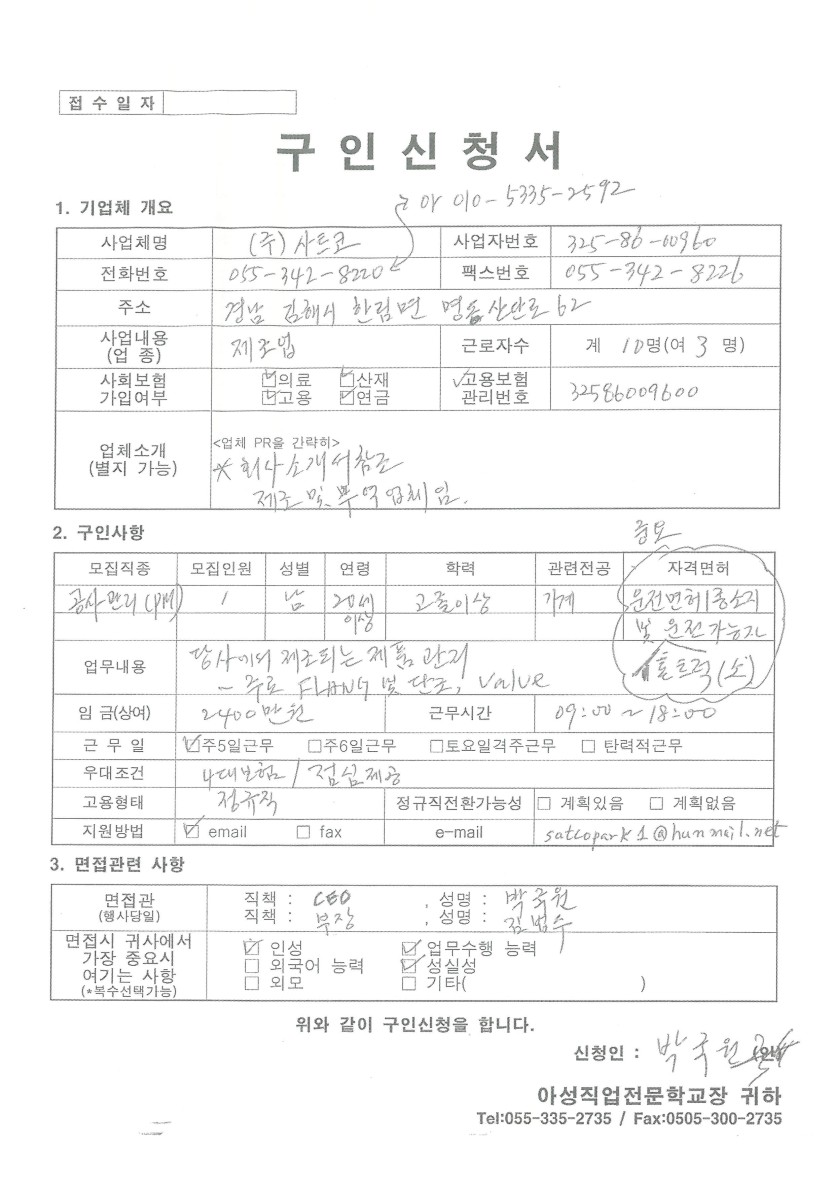 접 수 일 자
구 인 신 청 서
1. 기업체 개요
010-5335-2592
사업체명 (주) 사트코 사업자번호 325-86-00960
전화번호 055-342-8220 팩스번호 055-342-8226
주소 경남 김해시 한림면 명동산단로 62
사업내용 (업 종) 제조업 근로자수 계 10명(여 3 명)
사회보험 가입여부 ☑의료 ☑산재 ☑고용 ☑연금 ✓고용보험 관리번호 32586009600
업체소개 (별지 가능) <업체 PR을 간략히>
* 회사소개서참조
제조 및 무역업체임.
2. 구인사항
모집직종 모집인원 성별 연령 학력 관련전공 자격면허
공사관리(PM) 1 남 20세 이상 고졸이상 기계 운전면허1종소지
및 운전가능자
1톤트럭(소)
업무내용 당사에의 제조되는 제품 관리
- 주로 FLANG 및 단조, Value
임 금(상여) 2400만원 근무시간 09:00 ~ 18:00
근 무 일 ☑주5일근무 □주6일근무 □토요일격주근무 □ 탄력적근무
우대조건 4대보험 / 점심제공
고용형태 정규직 정규직전환가능성 □ 계획있음 □ 계획없음
지원방법 ☑ email □ fax e-mail satcopark1@hunmail.net
3. 면접관련 사항
면접관 (행사당일) 직책 : CEO , 성명 : 박국원
직책 : 부장 , 성명 : 김범수
면접시 귀사에서 가장 중요시 여기는 사항 (*복수선택가능)
☑ 인성 ☑ 업무수행 능력
□ 외국어 능력 ☑ 성실성
□ 외모 □ 기타( )
위와 같이 구인신청을 합니다.
신청인 : 박국원
아성직업전문학교장 귀하
Tel:055-335-2735 / Fax:0505-300-2735